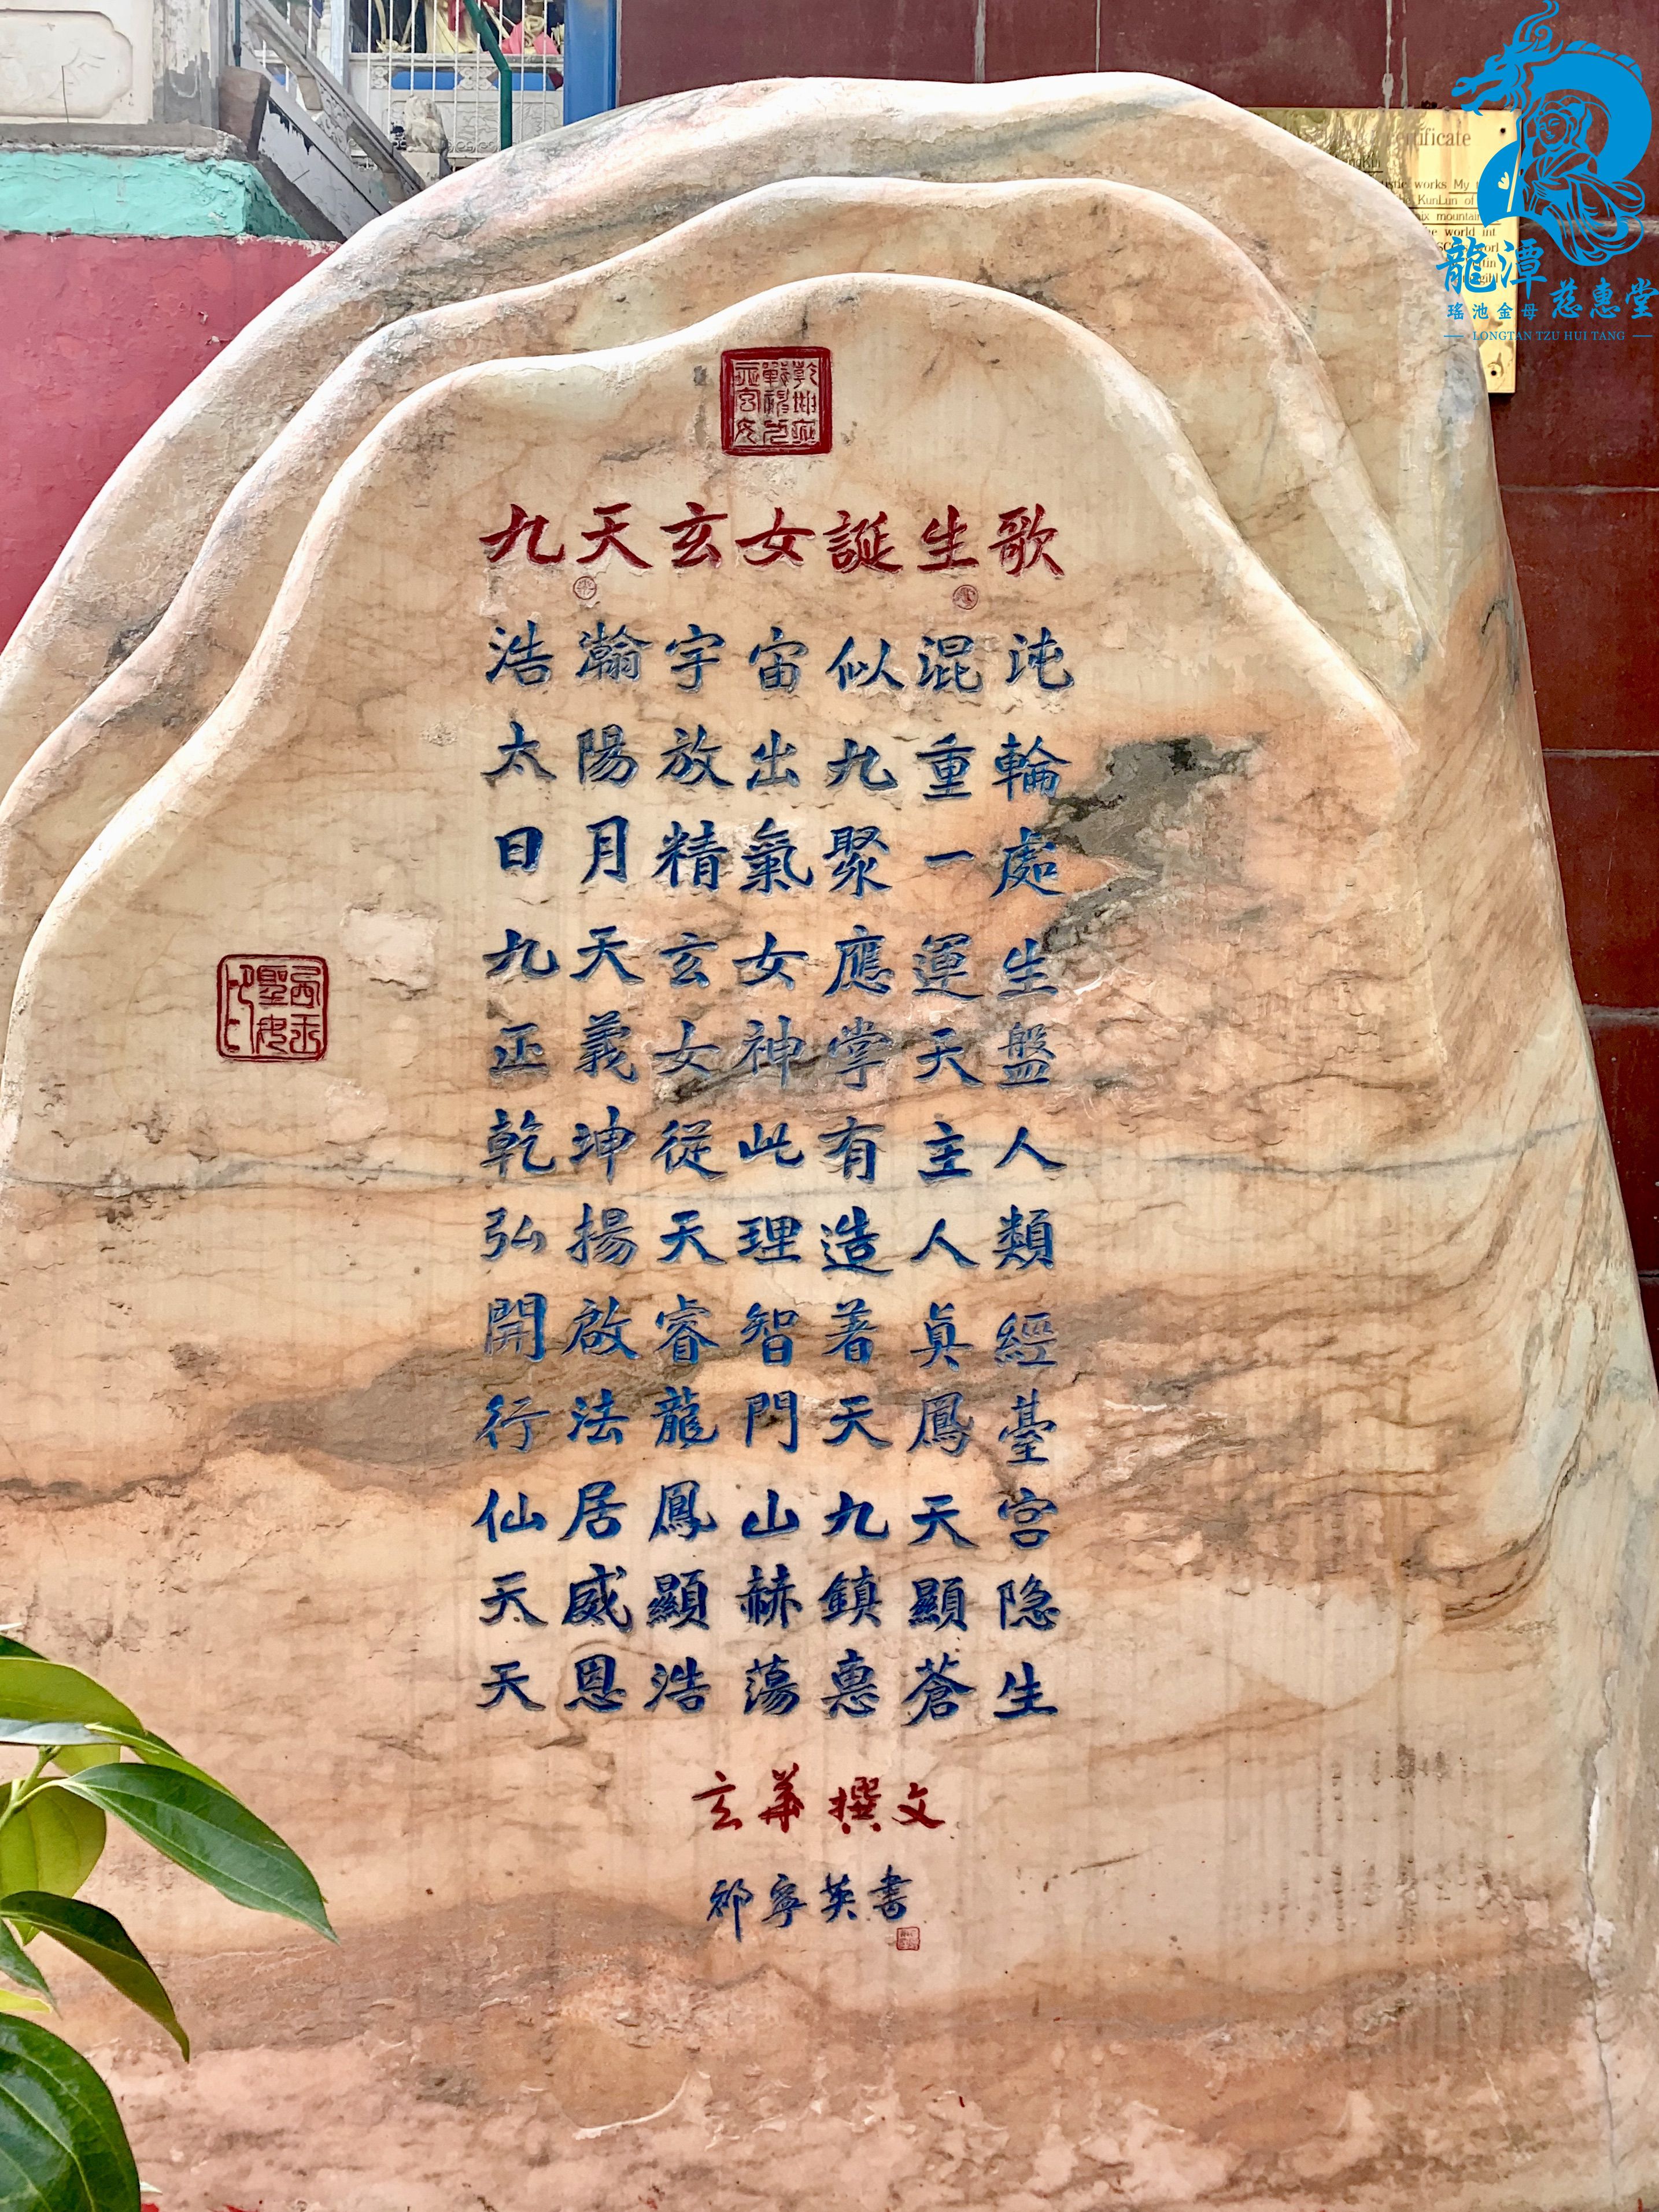 九天玄女誕生歌
浩瀚宇宙似混沌
太陽放出九重輪
日月精氣聚一處
九天玄女應運生
正義女神掌天盤
乾坤從此有主人
弘揚天理造人類
開啟睿智著真經
行法龍門天鳳臺
仙居鳳山九天宮
天威顯赫鎮顯隐
天恩浩蕩惠蒼生
玄華撰文
祁寧英書
龍潭
瑤池金母 慈惠堂
LONGTAN TZU HUI TANG
works My
KunLun of
mountain